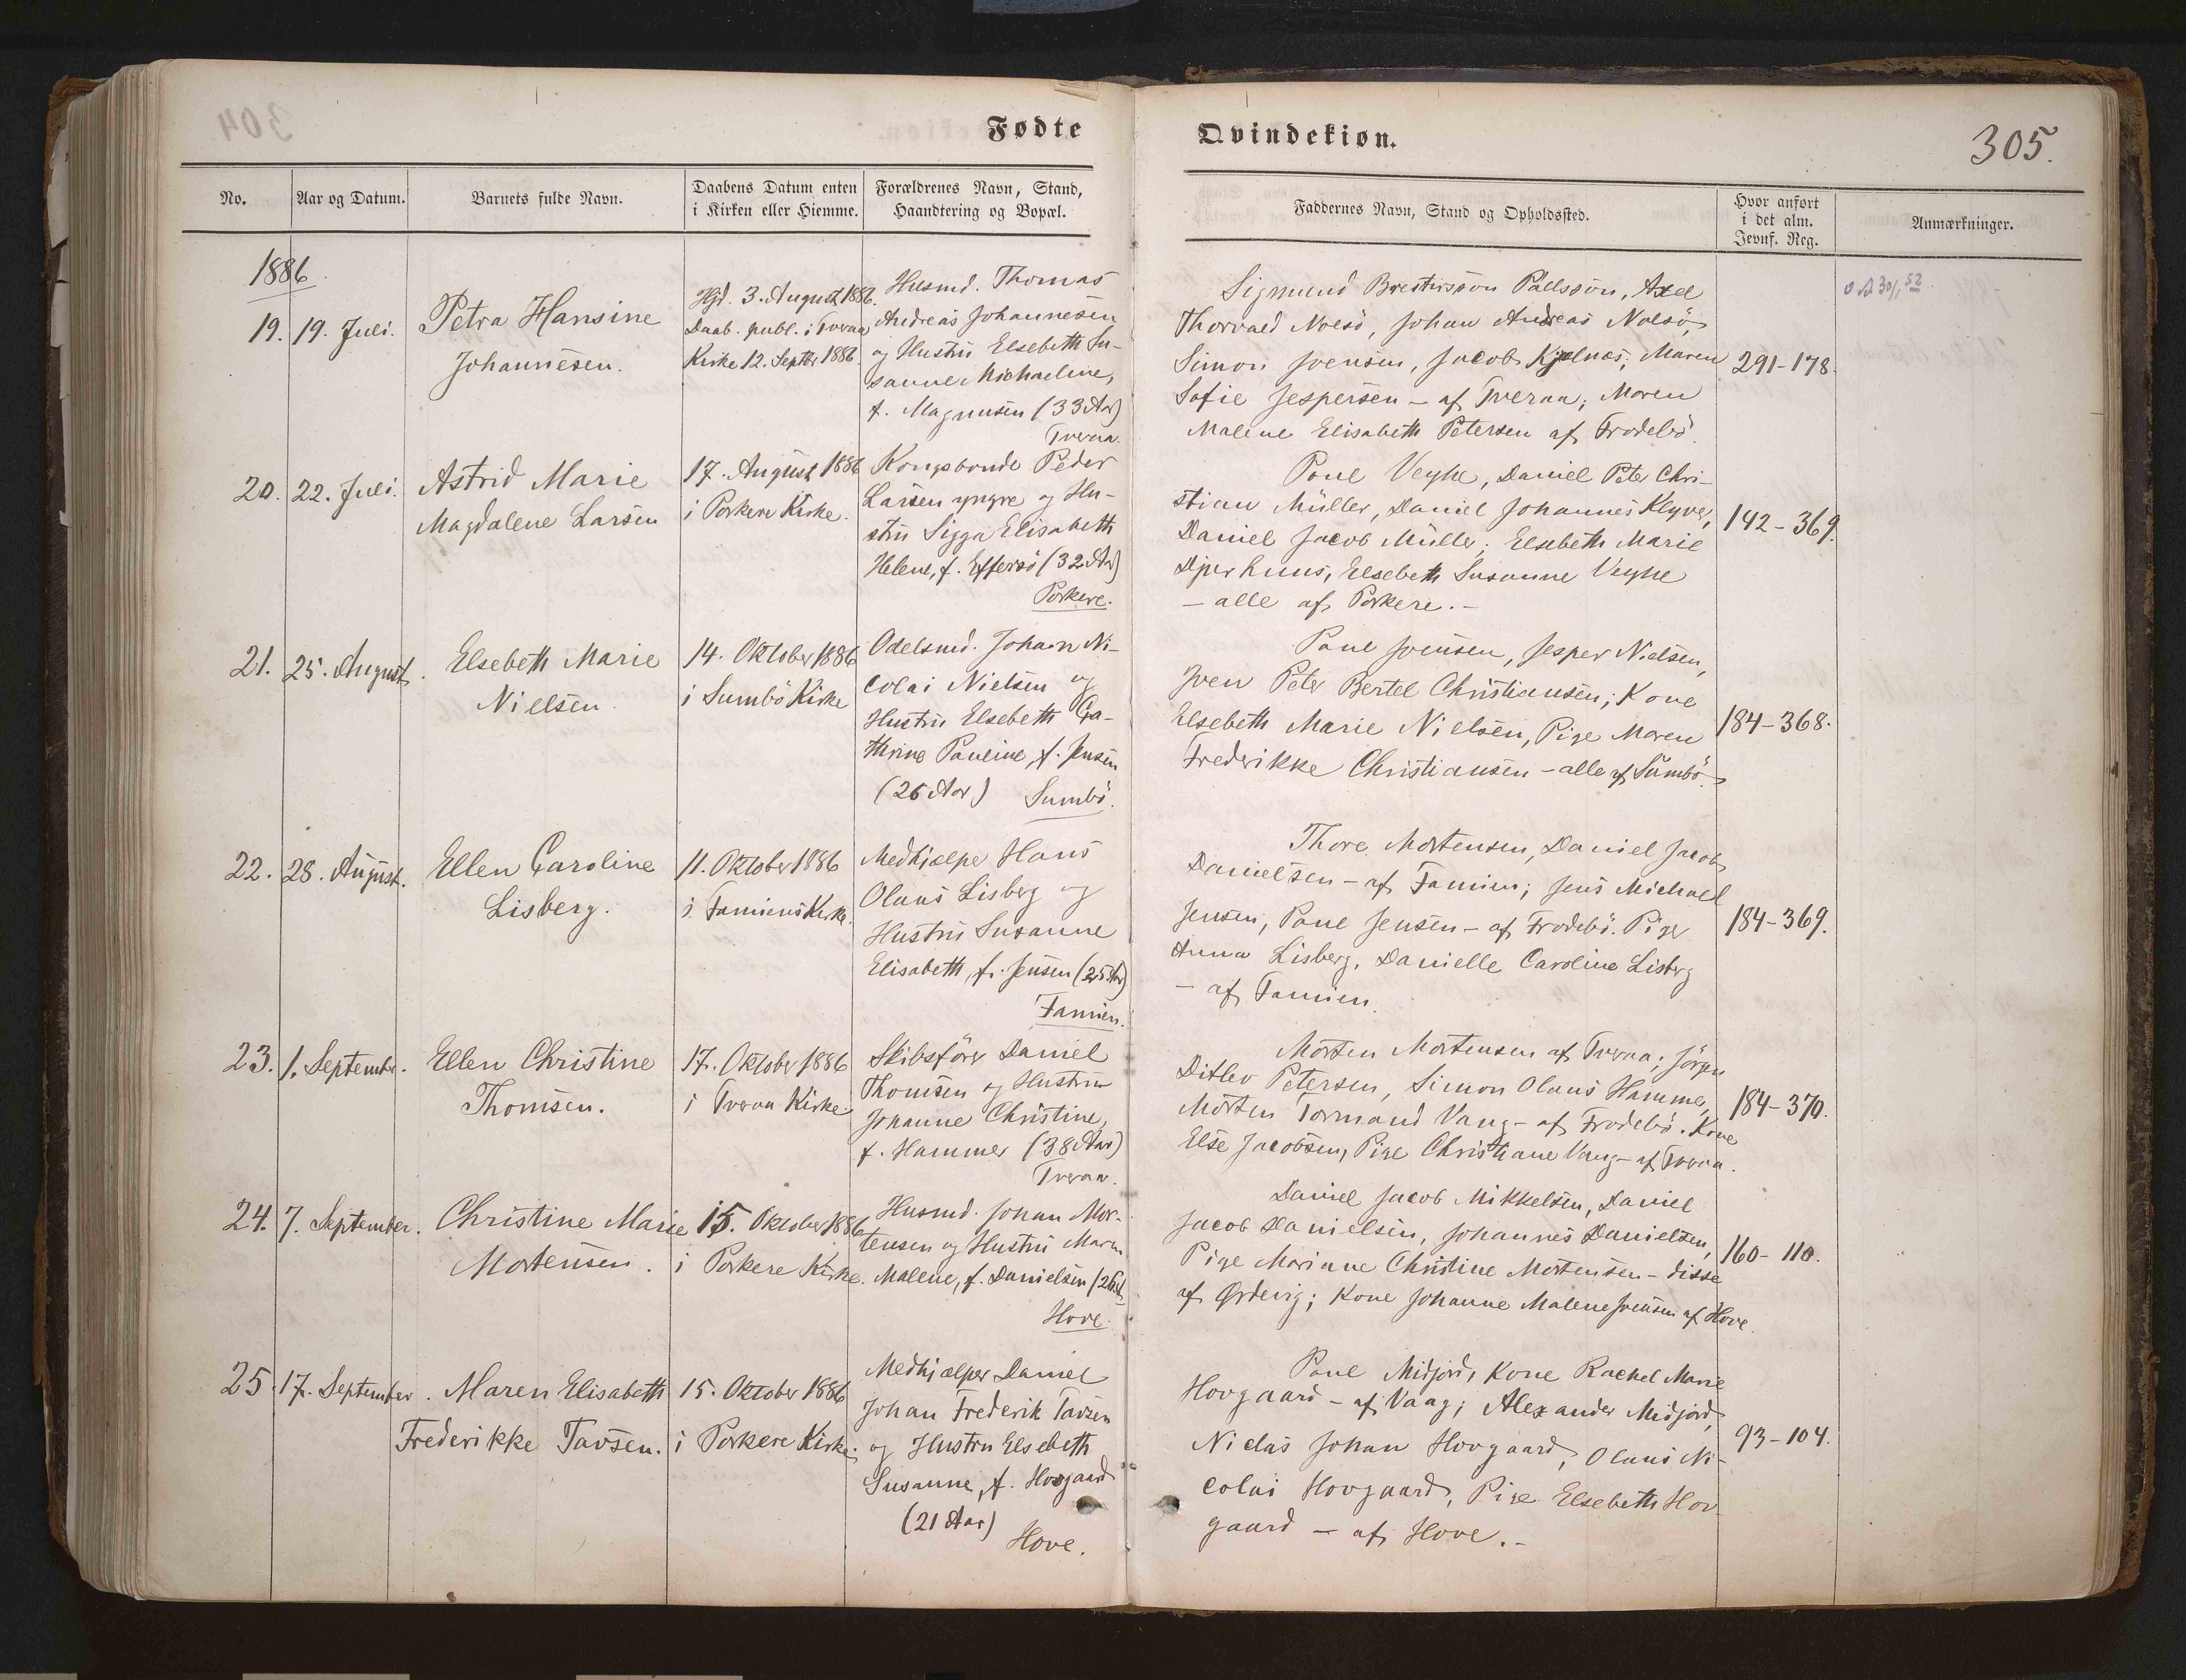 Fødte
Qvindekiøn.
305.
No.
Aar og Datum.
Barnets fulde Navn.
Daabens Datum enten
i Kirken eller Hiemme.
Forældrenes Navn, Stand,
Haandtering og Bopæl.
Faddernes Navn, Stand og Opholdssted.
Hvor anført
i det alm.
Jevnf. Reg.
Anmærkninger.
1886
19.
19. Juli.
Petra Hansine
Johannesen.
Hjd. 3. August 1886.
Daab. publ. i Tveraa
Kirke 12. Septbr 1886.
Husmd. Thomas
Andreas Johannesen
og Hustru Elsebeth Su-
sanne Michaeline,
f. Magnusen (33 Aar)
Tveraa.
Sigmund Brestirsson Pálsson, Axel
Thorvald Nolsö, Johan Andreas Nolsö,
Simon Joensen, Jacob Kjølnæs, Maren
Sofie Jespersen - af Tveraa; Maren
Malene Elisabeth Petersen af Frodebö.
291-178.
20.
22. Juli.
Astrid Marie
Magdalene Larsen
17. August 1886
i Porkere Kirke.
Kongsbonde Peder
Larsen yngre og Hu-
stru Sigga Elisabeth
Helene, f. Effersö (32 Aar)
Porkere.
Poul Veyhe, Daniel Peter Chri-
stian Müller, Daniel Johannes Klyver,
Daniel Jacob Müller; Elsebeth Marie
Djurhuus, Elsebeth Susanne Veyhe
- alle af Porkere. -
142-369.
21.
25. August.
Elsebeth Marie
Nielsen.
14. Oktober 1886
i Sumbö Kirke
Odelsmd. Johan Ni-
colai Nielsen og
Hustru Elsebeth Ca-
thrine Pauline, f. Jensen
(26 Aar) Sumbö.
Poul Joensen, Jesper Nielsen,
Joen Peter Bertel Christiansen; Kone
Elsebeth Marie Nielsen, Pige Maren
Frederikke Christiansen - alle af Sumbö.
184-368.
22.
28. August.
Ellen Caroline
Lisberg.
11. Oktober 1886
i Famiens Kirke.
Medhjælper Hans
Olaus Lisberg og
Hustru Susanne
Elisabeth, f. Jensen (25 Aar)
Famien.
Thore Mortensen, Daniel Jacob
Danielsen - af Famien; Jens Michael
Jensen, Poul Jensen - af Frodebö. Pige
Anna Lisberg, Danielle Caroline Lisberg
- af Famien.
184-369.
23.
1. September.
Ellen Christine
Thomsen.
17. Oktober 1886
i Tveraa Kirke
Skibsförer Daniel
Thomsen og Hustru
Johanne Christine,
f. Hammer (38 Aar)
Tveraa.
Morten Mortensen af Tveraa; Jörgen
Ditlev Petersen, Simon Olaus Hammer,
Morten Tormand Vang - af Frodebö. Kone
Else Jacobsen, Pige Christiane Vang - af Tveraa.
184-370.
24.
7. September.
Christine Marie
Mortensen.
15. Oktober 1886
i Porkere Kirke.
Husmd. Johan Mor-
tensen og Hustru Maren
Malene, f. Danielsen (26 A.)
Hove.
Daniel Jacob Mikkelsen, Daniel
Jacob Danielsen, Johannes Danielsen,
Pige Mariane Christine Mortensen - disse
af Ördevig; Kone Johanne Malene Joensen af Hove.
160-110.
25.
17. September.
Maren Elisabeth
Frederikke Tavsen.
15. Oktober 1886
i Porkere Kirke.
Medhjælper Daniel
Johan Frederik Tavsen
og Hustru Elsebeth
Susanne, f. Hovgaard
(21 Aar)
Hove.
Poul Midjord, Kone Rachel Marie
Hovgaard - af Vaag; Alexander Midjord,
Niclas Johan Hovgaard, Olaus Ni-
colai Hovgaard, Pige Elsebeth Hov-
gaard - af Hove. -
93-104.